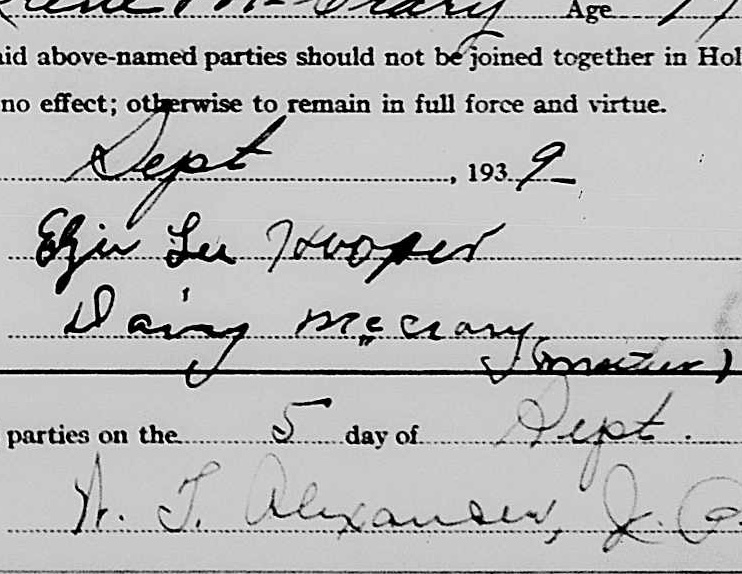 McCrary Age 17
aid above-named parties should not be joined together in Hol
no effect; otherwise to remain in full force and virtue.
Sept , 1939
Lee Hooper
Daisy McCrary
(mother)
parties on the 5 day of Sept.
T. Alexander, J. P.